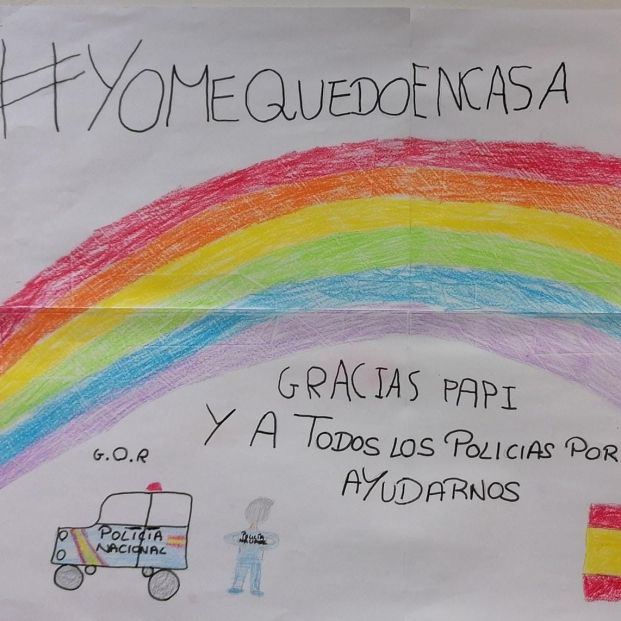 #YOMEQUEDOENCASA
GRACIAS PAPI
Y A TODOS LOS POLICIAS POR
AYUDARNOS
G.O.R
POLICIA
NACIONAL
POLICIA
NACIONAL